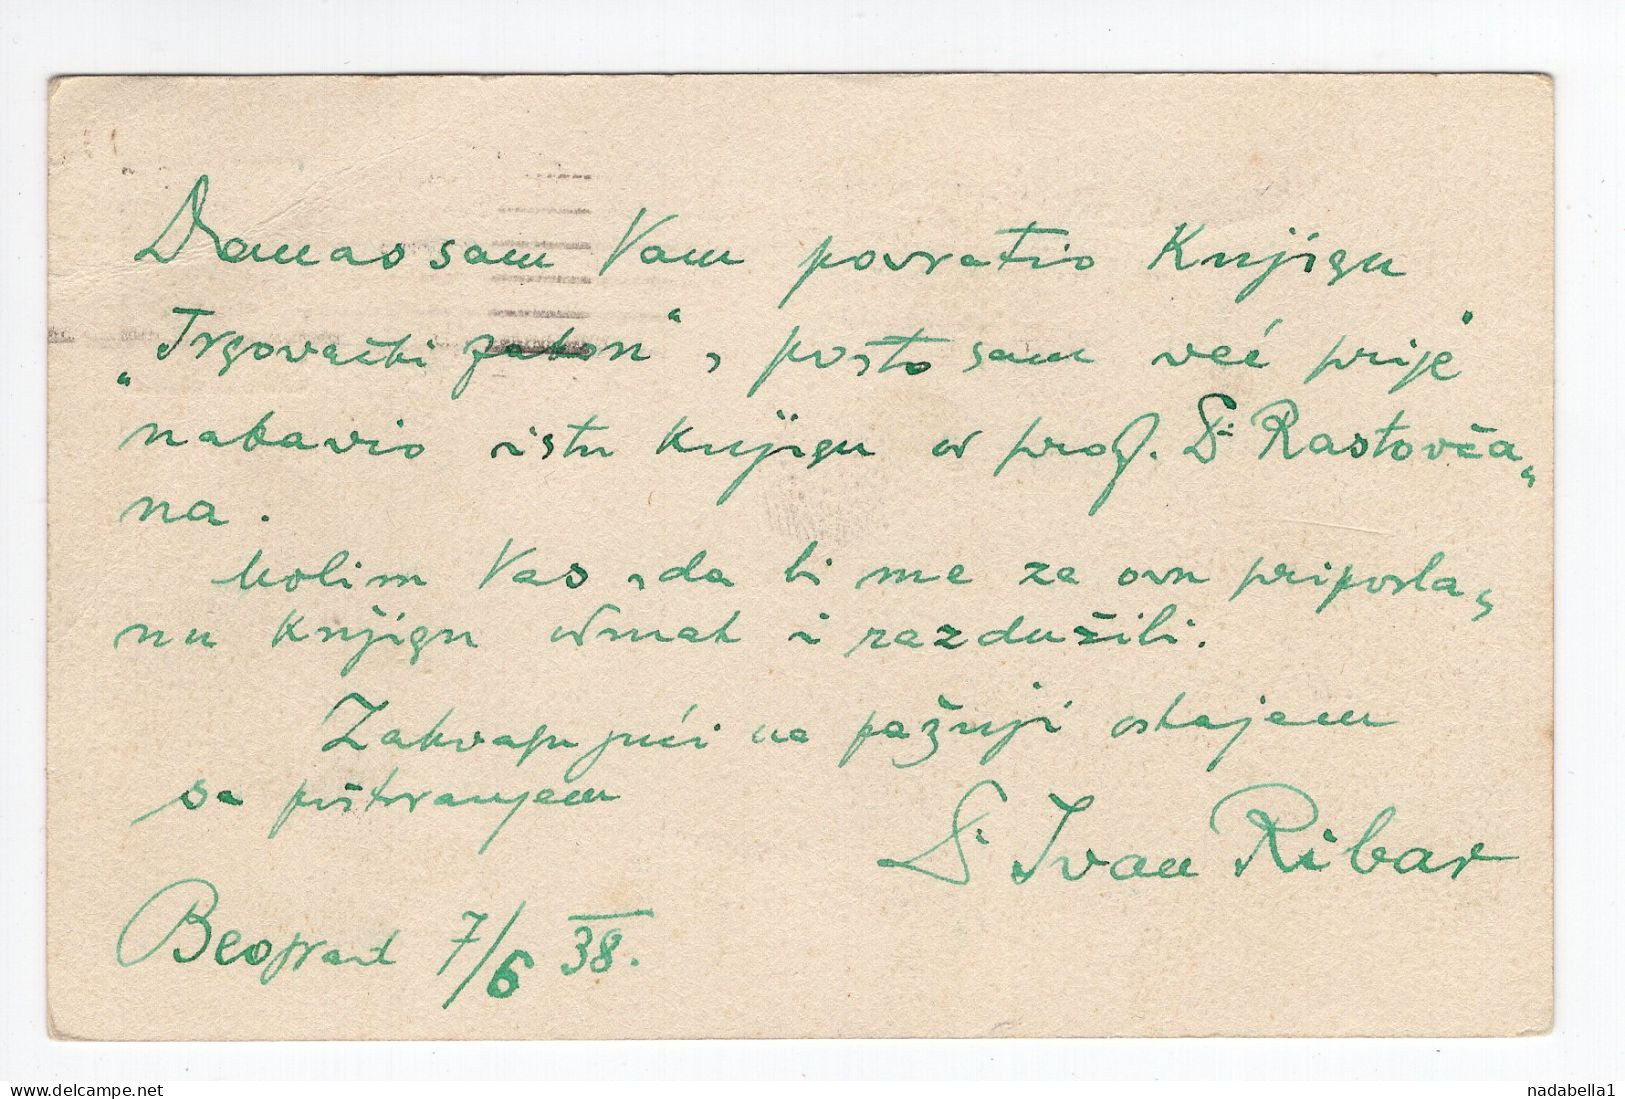 Danas sam Vam povratio Knjigu
„Trgovački zakon“, pošto sam već prije
nabavio istu knjigu u prof. Dr Rastovča„
na.
Molim Vas, da bi me za ovu priposla„
nu knjigu odmah i razdužili.
Zahvaljujući na pažnji ostajem
sa poštovanjem
Dr Ivan Ribar
Beograd 7/6 38.
www.delcampe.net
nadabella1